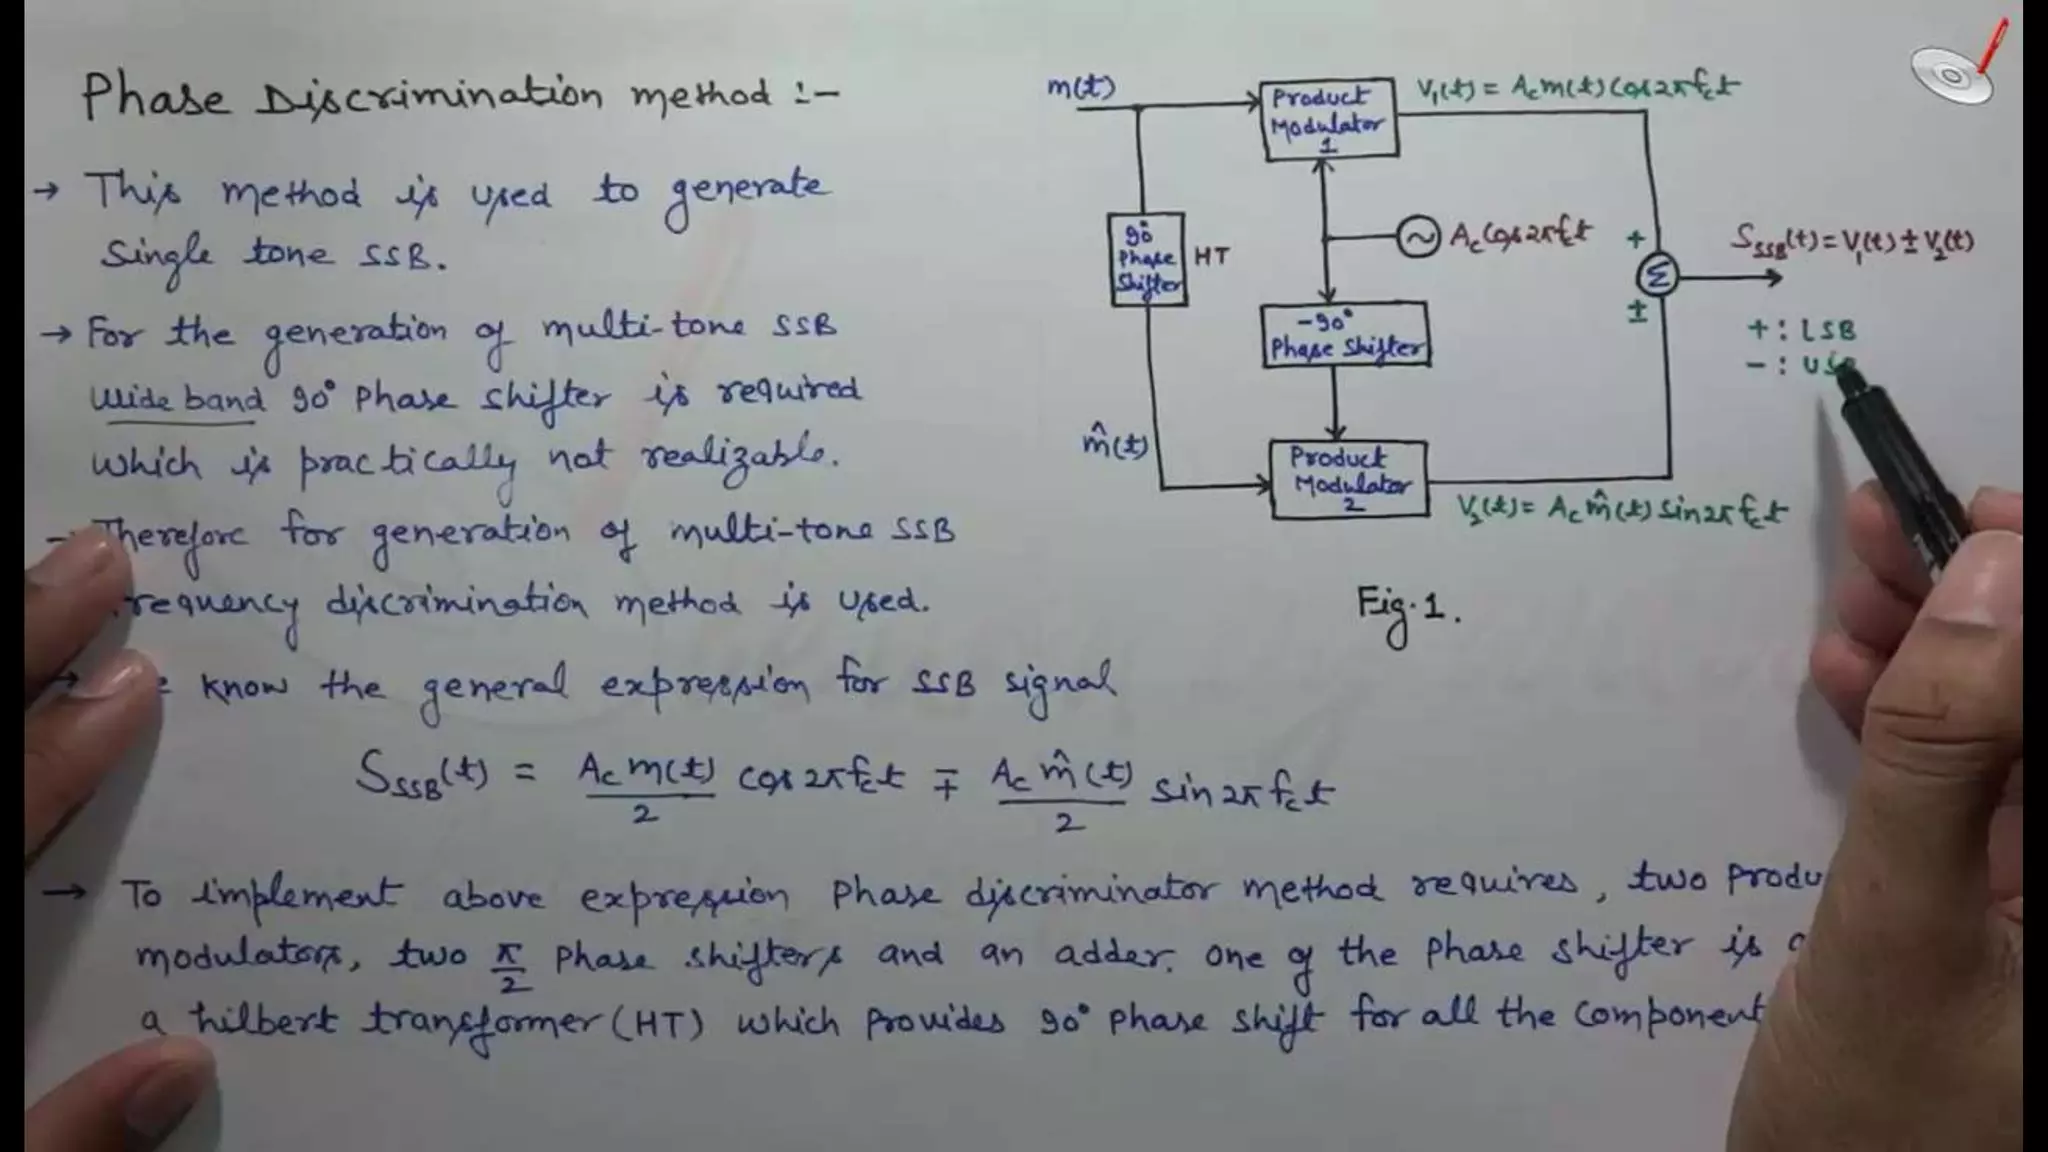 Phase Discrimination method :-
→ This method is used to generate
Single tone SSB.
→ For the generation of multi-tone SSB
wide band 90° Phase shifter is required
which is practically not realizable.
Therefore for generation of multi-tone SSB
requency discrimination method is used.
know the general expression for SSB signal
S_SSB(t) = A_c m(t)/2 cos2πf_c t ∓ A_c m̂(t)/2 sin2πf_c t
→ To implement above expression Phase discriminator method requires, two Produ
modulators, two π/2 Phase shifters and an adder. One of the Phase shifter is
a hilbert transformer (HT) which provides 90° Phase shift for all the Component
m(t)
Product
Modulator
1
V₁(t) = A_c m(t) cos2πf_c t
90°
Phase
Shifter
HT
A_c cos2πf_c t
+
Σ
±
S_SSB(t) = V₁(t) ± V₂(t)
+ : LSB
- : USB
-90°
Phase Shifter
m̂(t)
Product
Modulator
2
V₂(t) = A_c m̂(t) sin2πf_c t
Fig. 1.